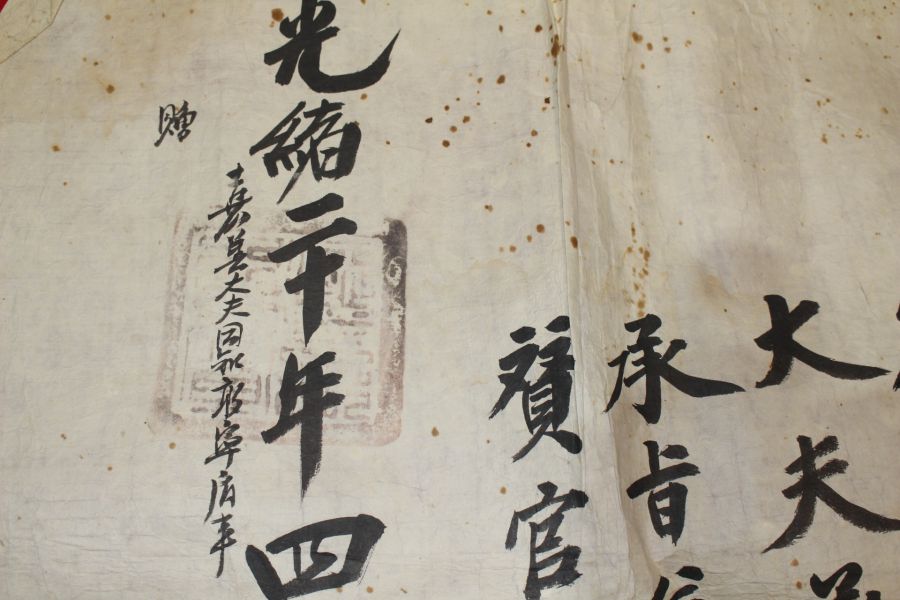 大夫
承旨
贊官
光緒二十年四
嘉大夫同知敦寧府事
贈